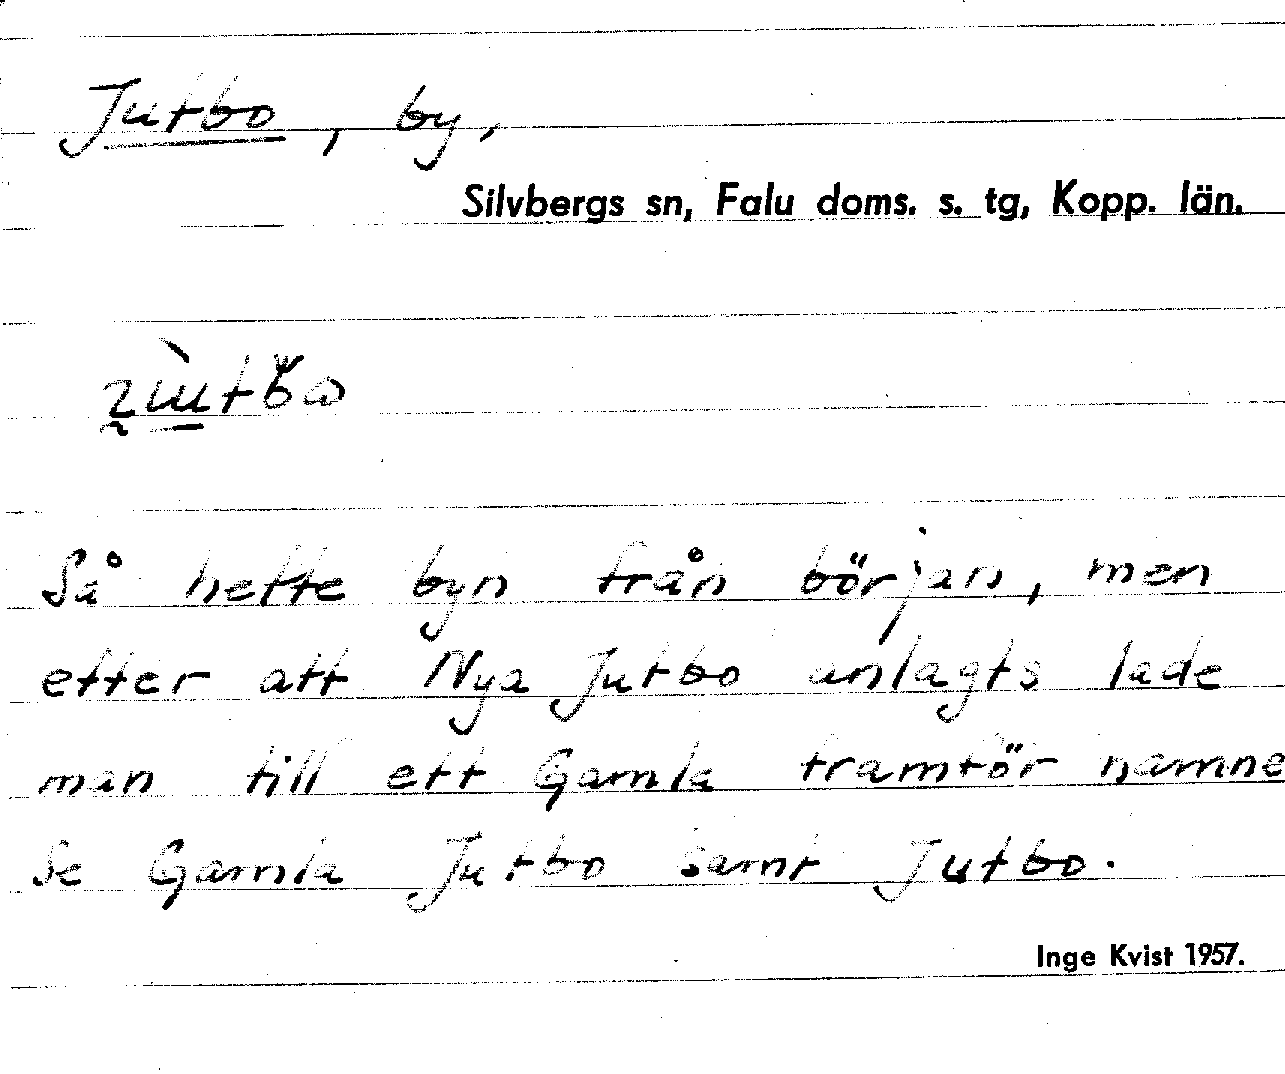 Jutbo, by,
Silvbergs sn, Falu doms. s. tg, Kopp. län.
Så hette byn från början, men
efter att Nya Jutbo anlagts lade
man till ett Gamla framför namne
Se Gamla Jutbo samt Jutbo.
Inge Kvist 1957.